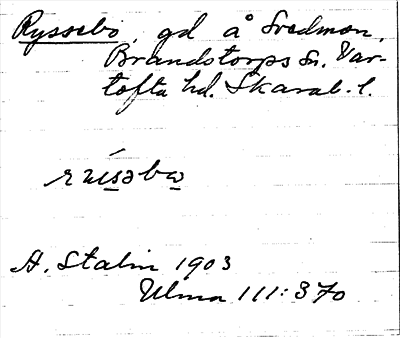 Ryssebo, gd å Svedmon,
Brandstorps Sn. Var-
tofta hd. Skarab. l.
A. Stalin 1903
Ulma 111:370